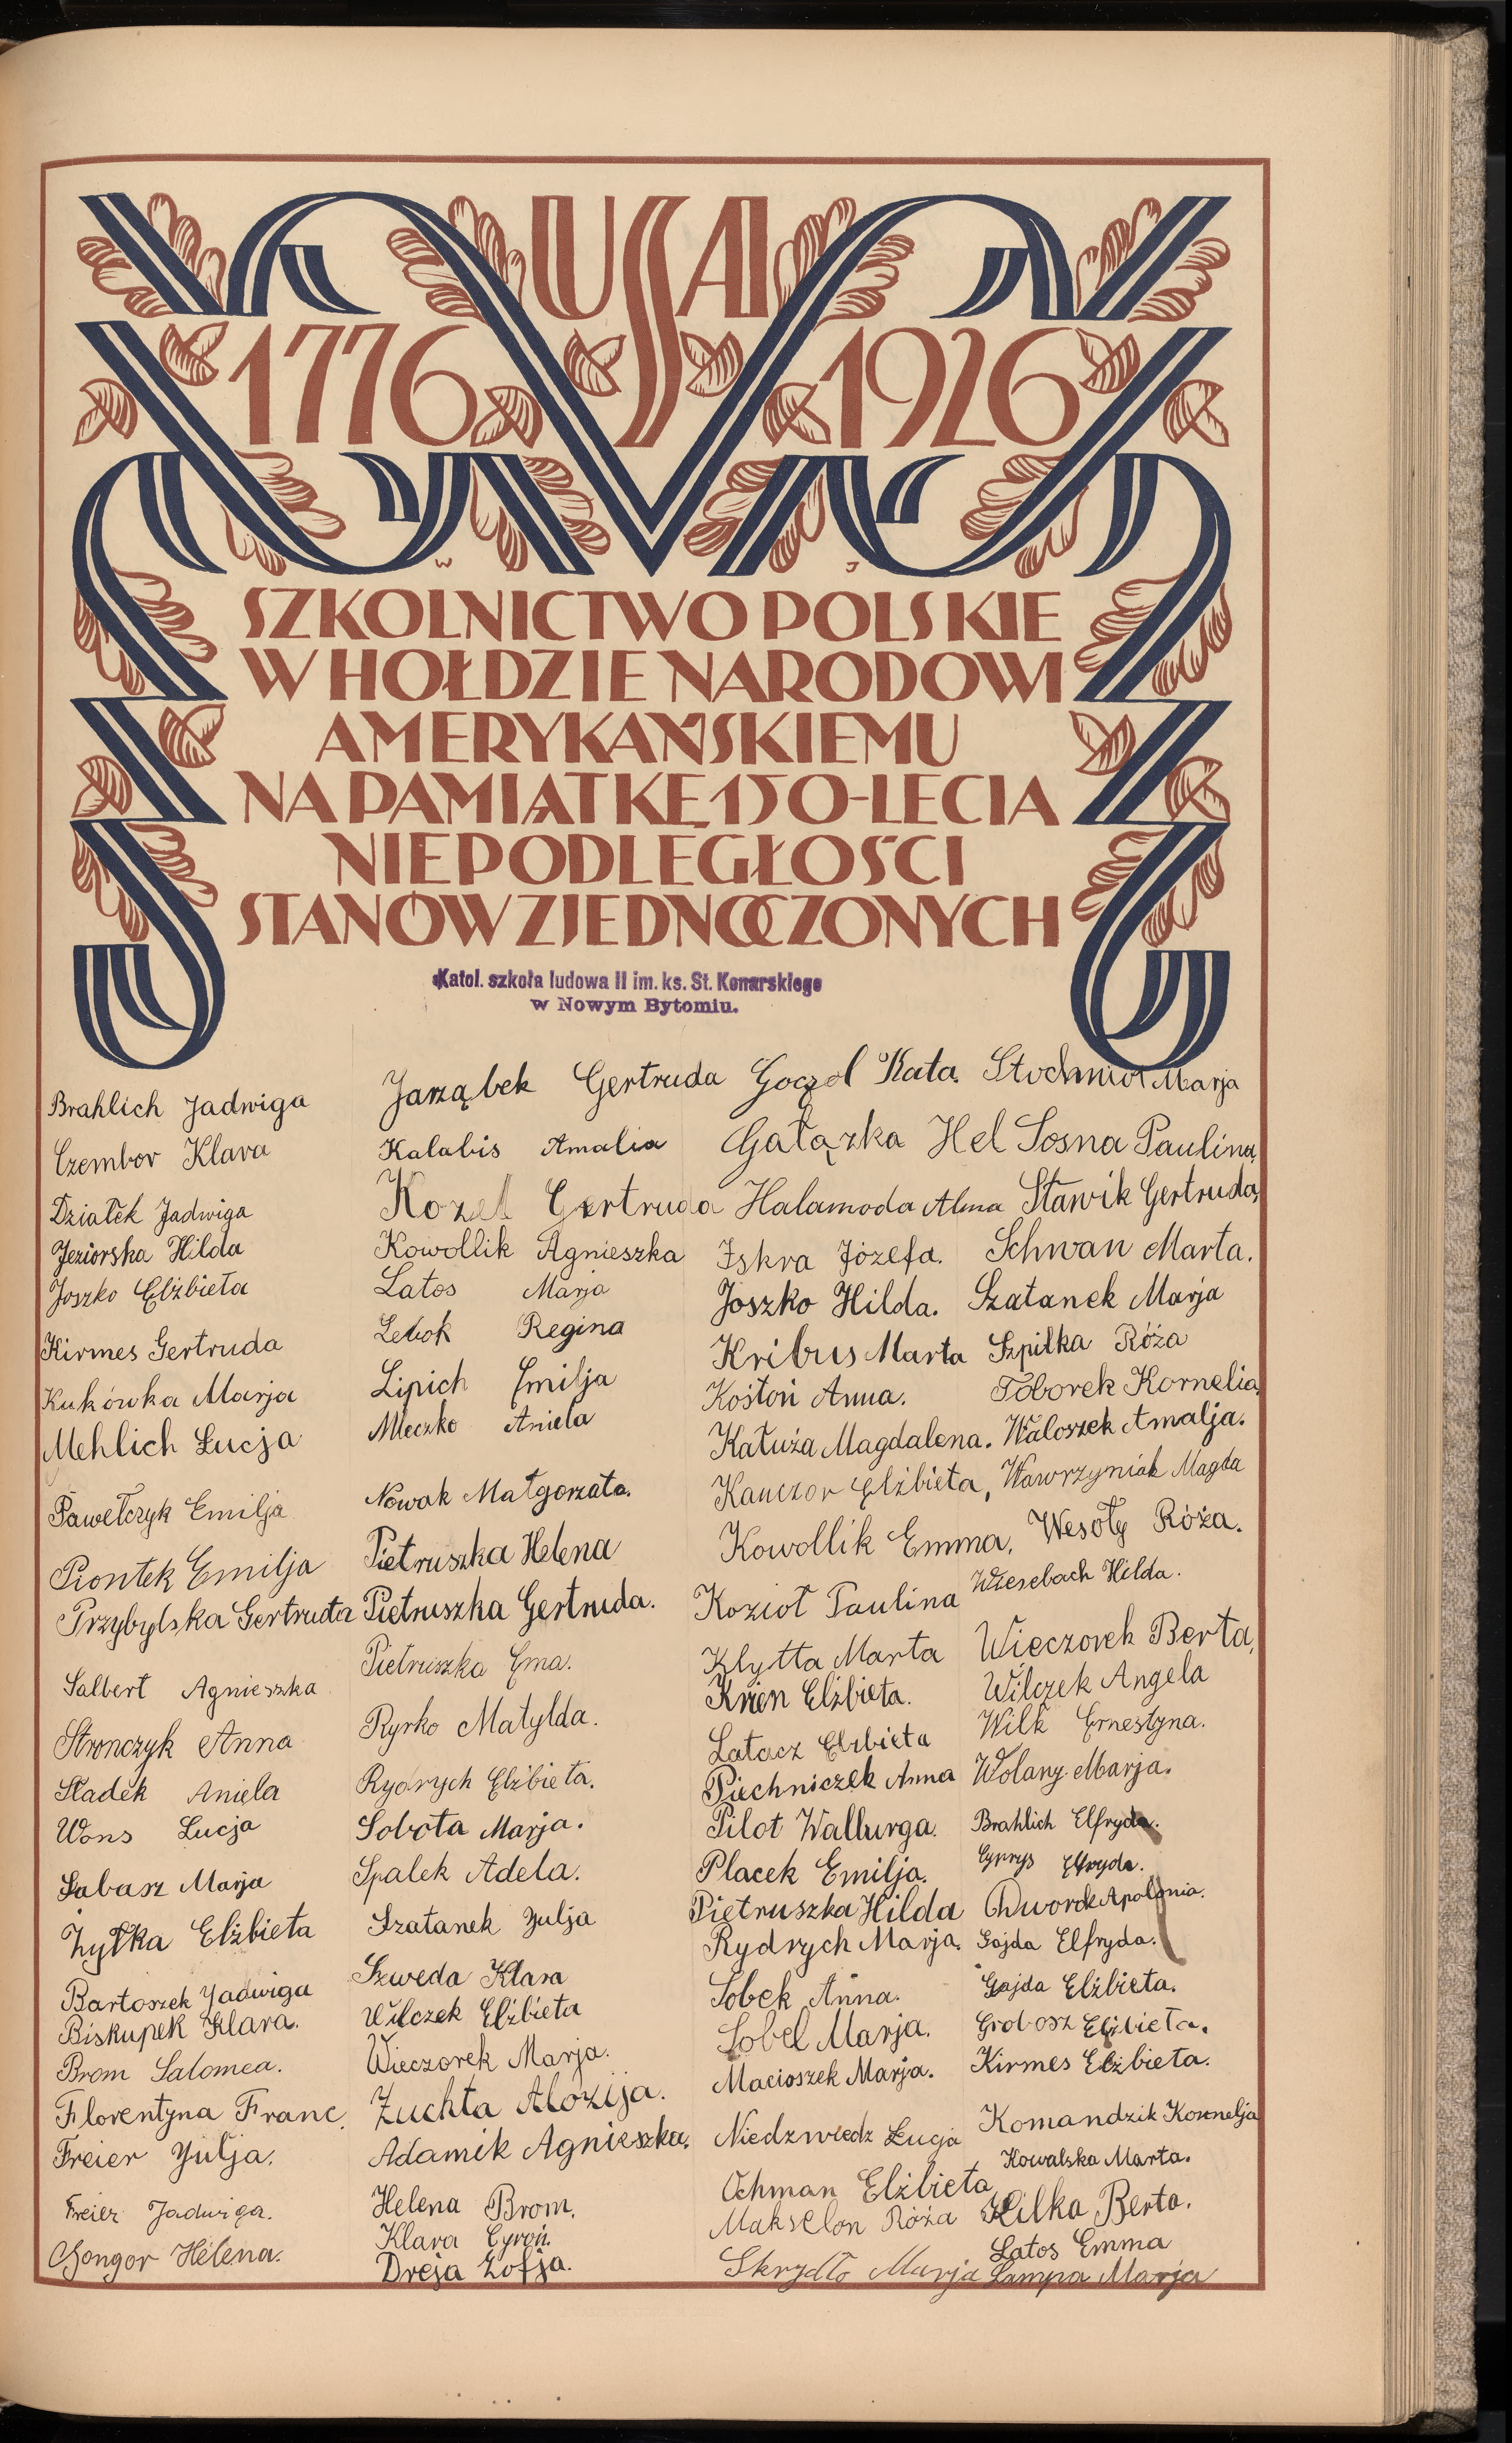 USA
1776 1926
W J
SZKOLNICTWO POLSKIE
W HOŁDZIE NARODOWI
AMERYKAŃSKIEMU
NA PAMIĄTKĘ 150-LECIA
NIEPODLEGŁOŚCI
STANÓW ZJEDNOCZONYCH
Katol. szkoła ludowa II im. ks. St. Konarskiego
w Nowym Bytomiu.
Brahlich Jadwiga
Czembor Klara
Działek Jadwiga
Jeziorska Hilda
Joszko Elżbieta
Kirmes Gertruda
Kukówka Marja
Mehlich Łucja
Pawełczyk Emilja
Piontek Emilja
Przybylska Gertruda
Salbert Agnieszka
Stronczyk Anna
Sładek Aniela
Wons Łucja
Łabasz Marja
Żyłka Elżbieta
Bartoszek Jadwiga
Biskupek Klara.
Brom Salomea.
Florentyna Franc.
Freier Julja.
Freier Jadwiga.
Gongor Helena.
Jarząbek Gertruda
Kalabis Amalia
Kozel Gertruda
Kowollik Agnieszka
Latos Marja
Lebok Regina
Lipich Emilja
Mleczko Aniela
Nowak Małgorzata.
Pietruszka Helena
Pietruszka Gertruda.
Pietruszka Ema.
Ryrko Matylda.
Rydrych Elżbieta.
Sobota Marja.
Spalek Adela.
Szatanek Julja
Szweda Klara
Wilczek Elżbieta
Wieczorek Marja.
Zuchta Alozija.
Adamik Agnieszka.
Helena Brom.
Klara Cyroń.
Dreja Zofja.
Goczol Kata.
Gałązka Hel
Halamoda Alma
Iskra Józefa.
Joszko Hilda.
Kribus Marta
Kostoń Anna.
Kałuża Magdalena.
Kanczor Elżbieta,
Kowollik Emma.
Kozioł Paulina
Klytta Marta
Krien Elżbieta.
Latacz Elżbieta
Piechniczek Anna
Pilot Wallurga.
Placek Emilja.
Pietruszka Hilda
Rydrych Marja.
Sobek Anna.
Sobel Marja.
Macioszek Marja.
Niedzwiedz Łucja
Ochman Elżbieta
Makselon Róża
Skrzydło Marja
Stochniol Marja
Sosna Paulina,
Stawik Gertruda,
Schwan Marta.
Szatanek Marja
Szpilka Róża
Toborek Kornelia.
Waloszek Amalja.
Wawrzyniak Magda
Wesoły Róża.
Wiesebach Hilda.
Wieczorek Berta,
Wilczek Angela
Wilk Ernestyna.
Wolany Marja.
Brahlich Elfryda.
Cyprys Elfryda.
Dworok Apolonia.
Gajda Elfryda.
Gajda Elżbieta.
Grobosz Elżbieta.
Kirmes Elżbieta.
Komandzik Kornelja
Kowalska Marta.
Kilka Berta.
Latos Emma
Lampa Marja